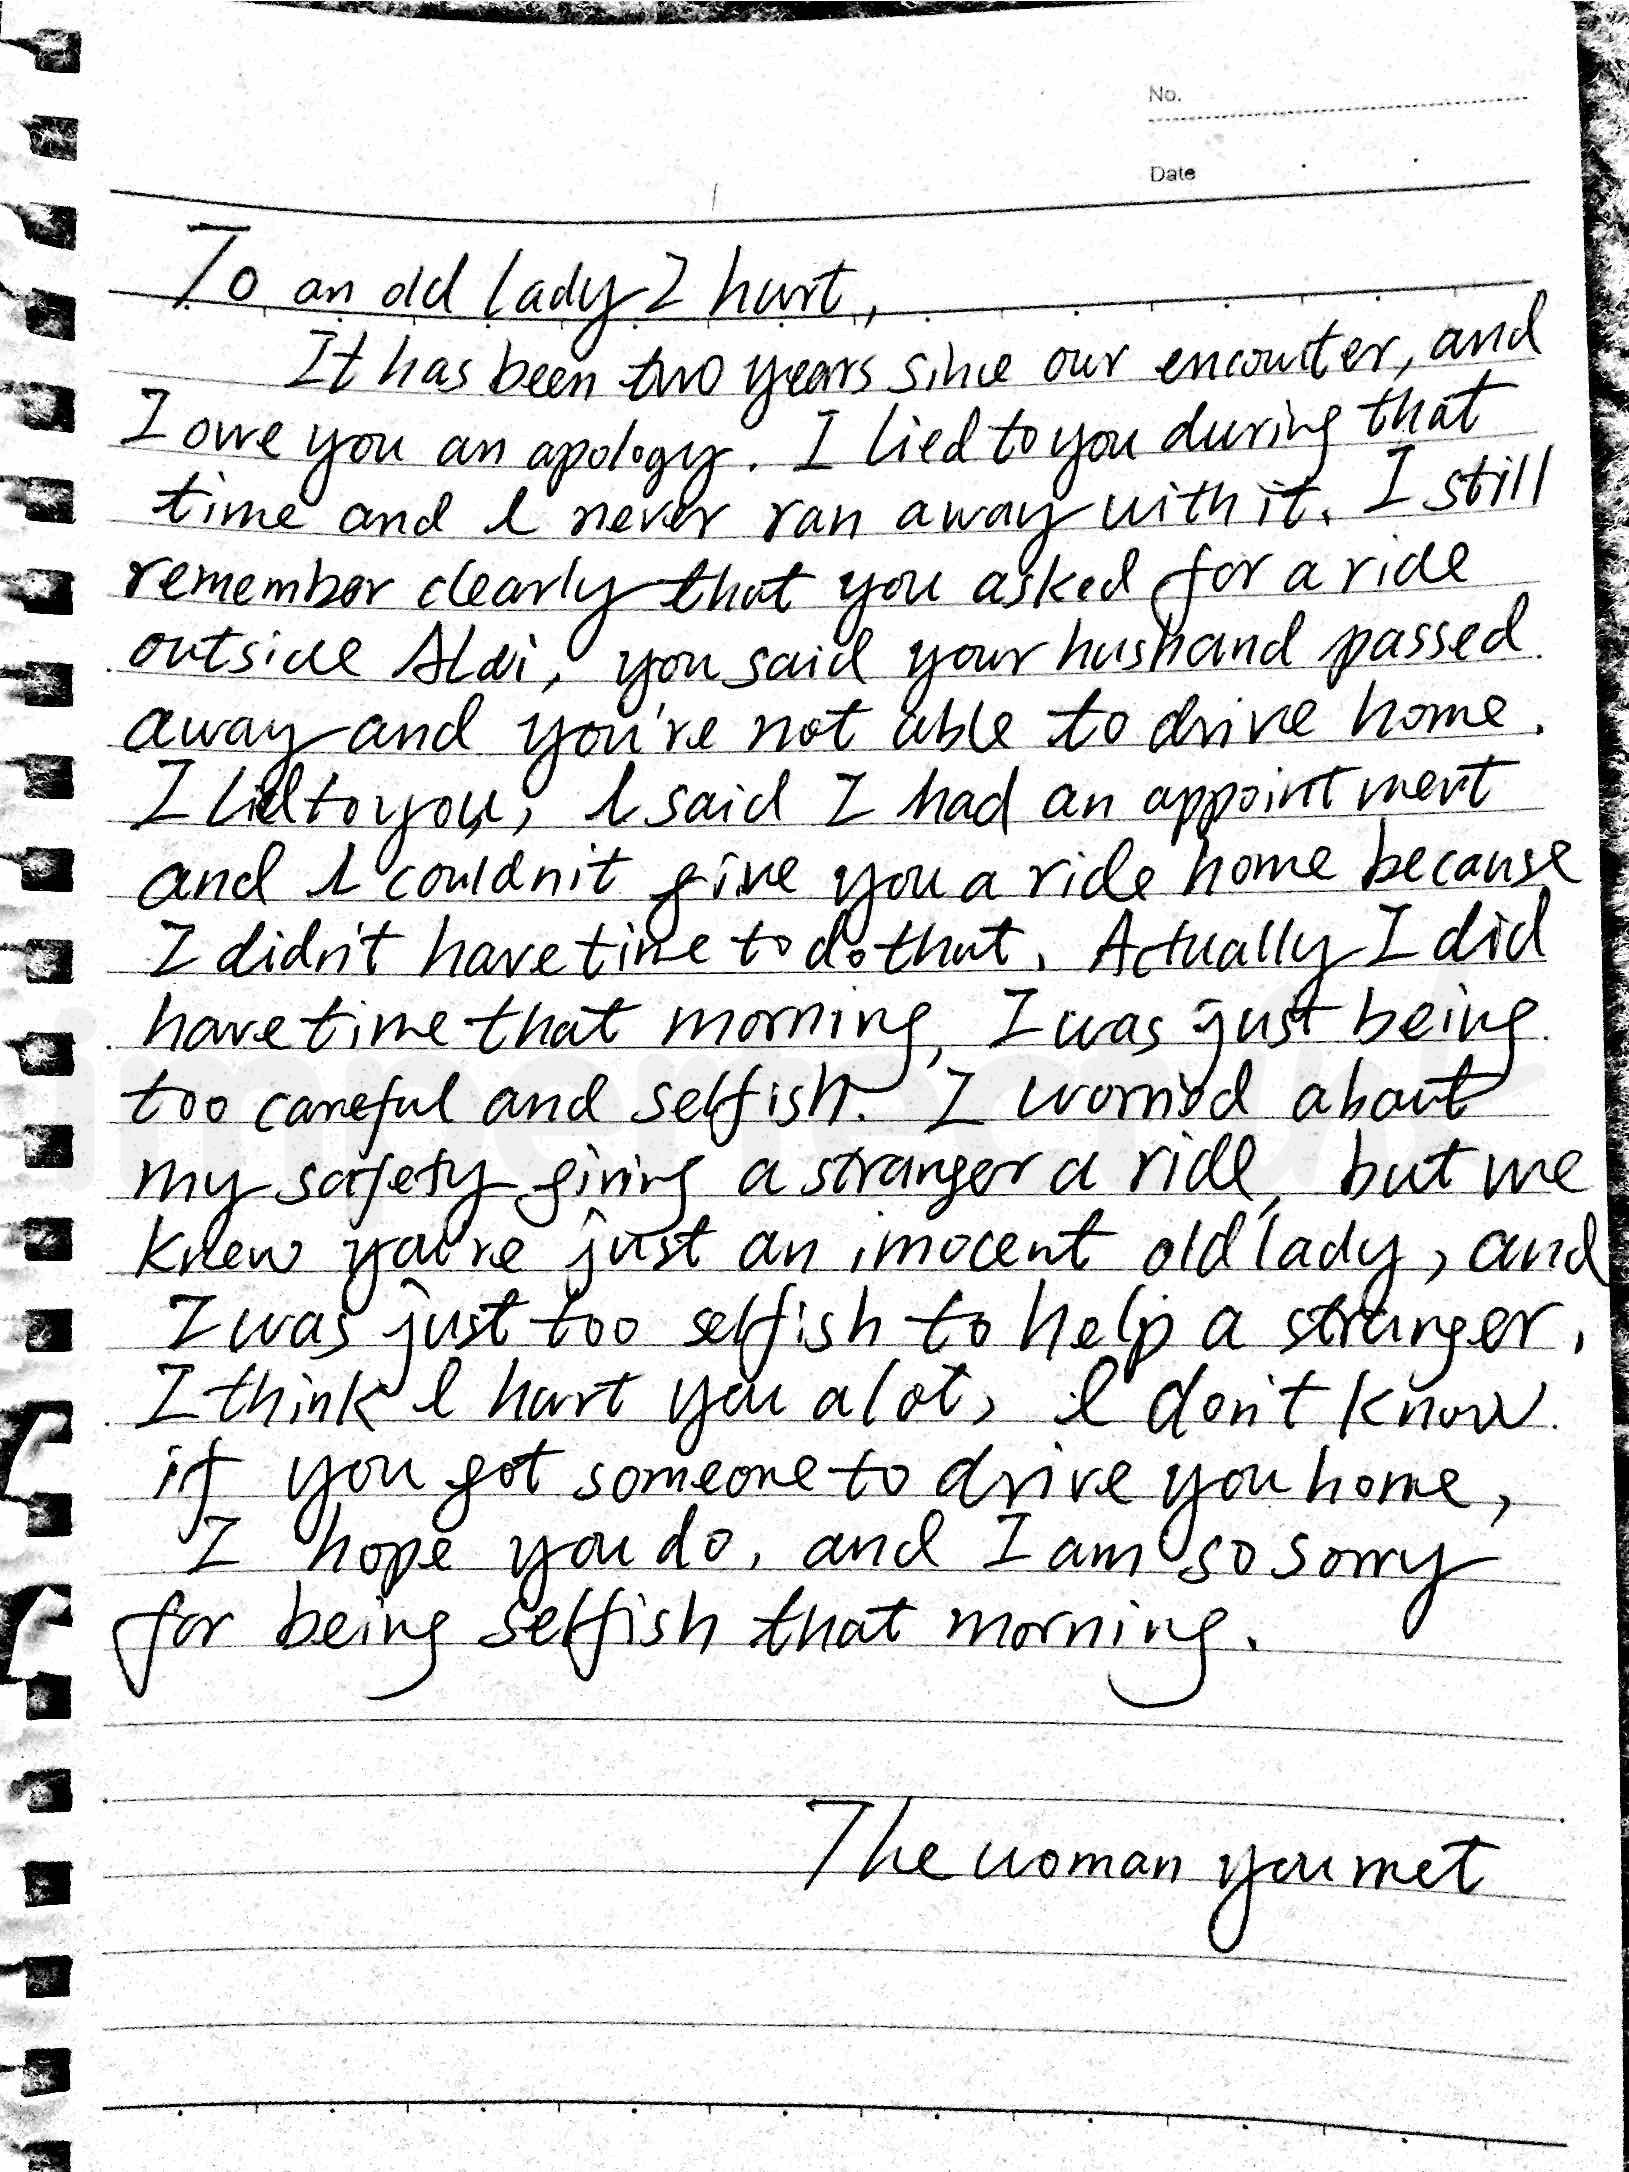 No.
Date
To an old lady I hurt,
It has been two years since our encounter, and
I owe you an apology. I lied to you during that
time and I never ran away with it. I still
remember clearly that you asked for a ride
outside ALDi, you said your husband passed
away and you're not able to drive home.
I lied to you, I said I had an appointment
and I couldn't give you a ride home because
I didn't have time to do that. Actually I did
have time that morning, I was just being
too careful and selfish. I worried about
my safety giving a stranger a ride, but we
knew you're just an innocent old lady, and
I was just too selfish to help a stranger.
I think I hurt you a lot, I don't know
if you got someone to drive you home,
I hope you do, and I am so sorry
for being selfish that morning.
The woman you met